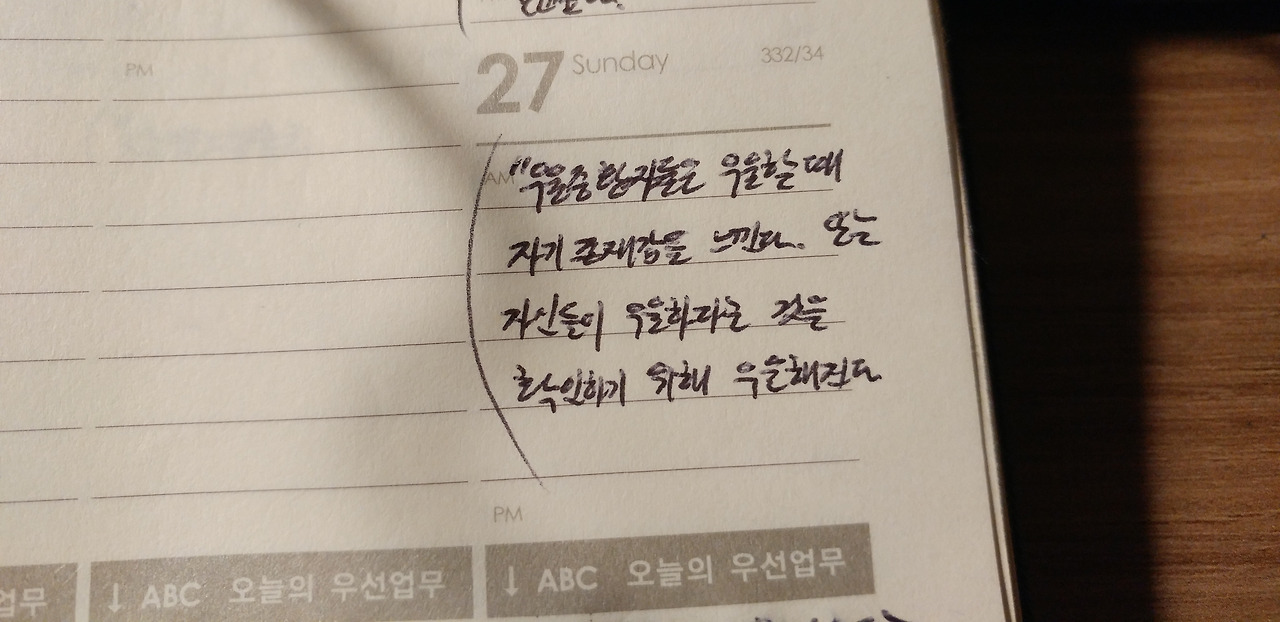 PM
27 Sunday 332/34
AM
"우울증환자들은 우울할때
자기 존재감을 느낀다. 또는
자신들이 우울하다는 것을
확인하기 위해 우울해진다
PM
업무
↓ ABC 오늘의 우선업무
↓ ABC 오늘의 우선업무